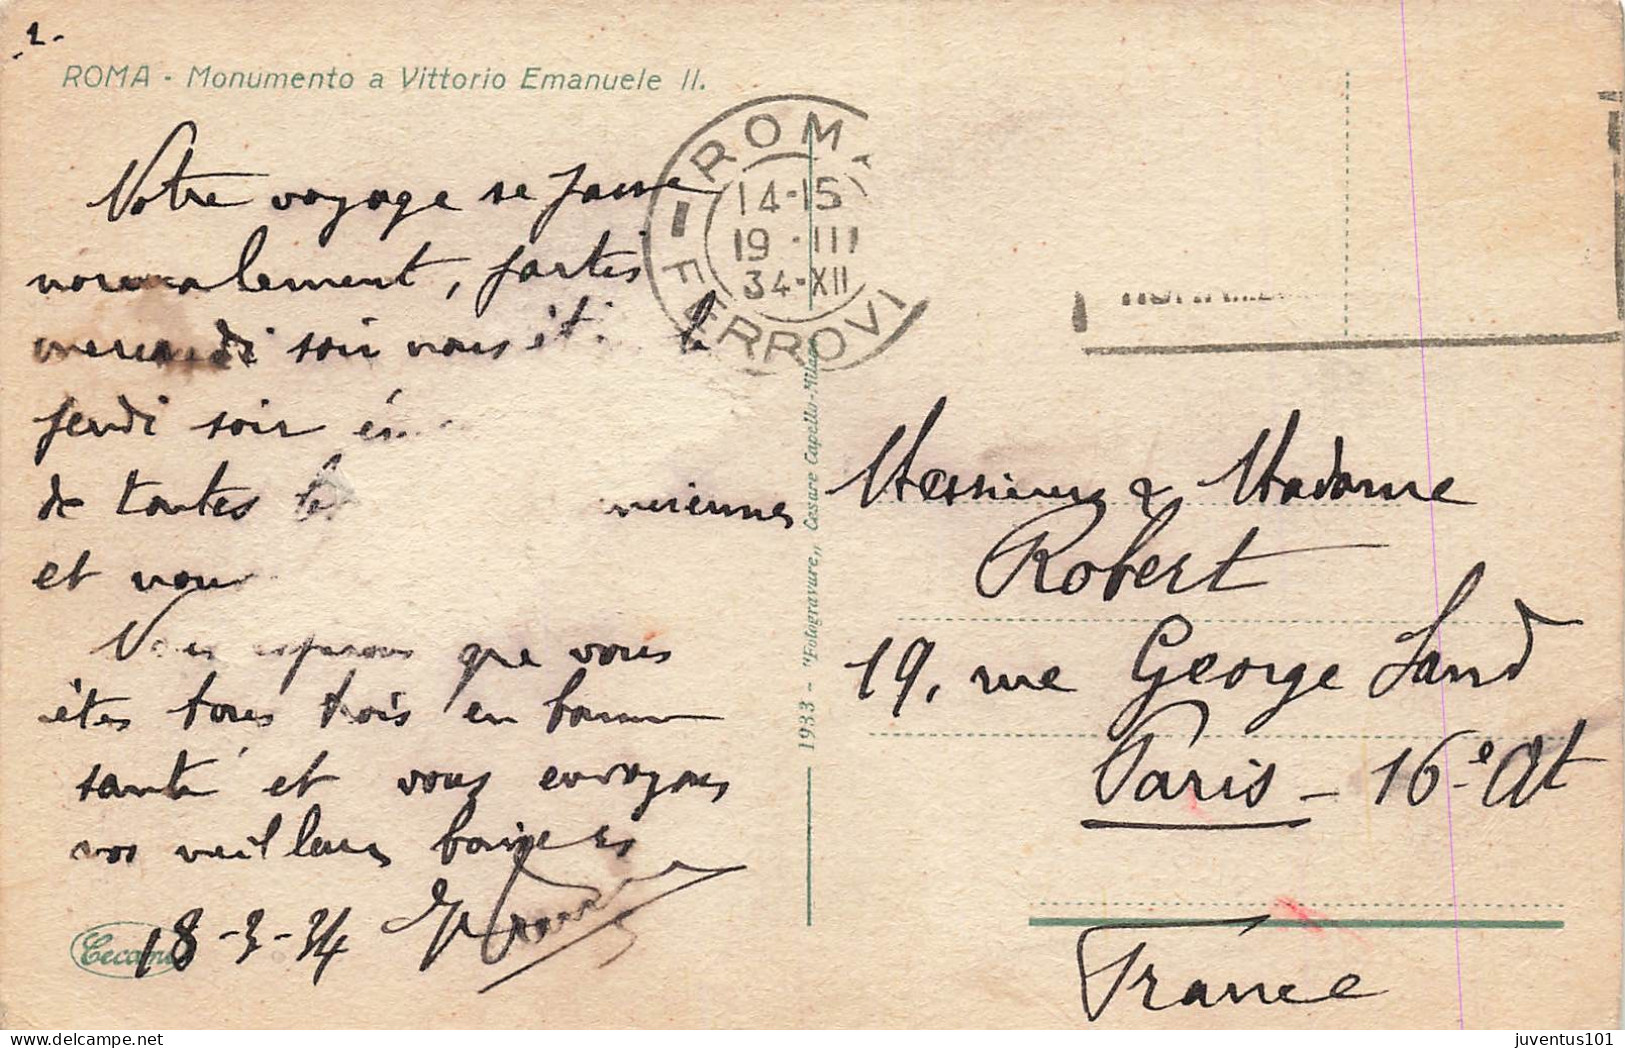 1.
ROMA - Monumento a Vittorio Emanuele II.
ROM
14-15
19 · III
34-XII
FERROVI
Votre voyage se passe
normalement, partis
mercredi soir nous
jendi soir
de toutes
et
Nous esperons que vous
êtes tous trois en bonne
santé et vous envoyons
nos meilleurs baisers
18-3-34
Cecami
1933 - "Fotogravure,, Cesare Capello-Milano
Messieurs & Madame
Robert
19, rue George Sand
Paris - 16e At
France
juventus101